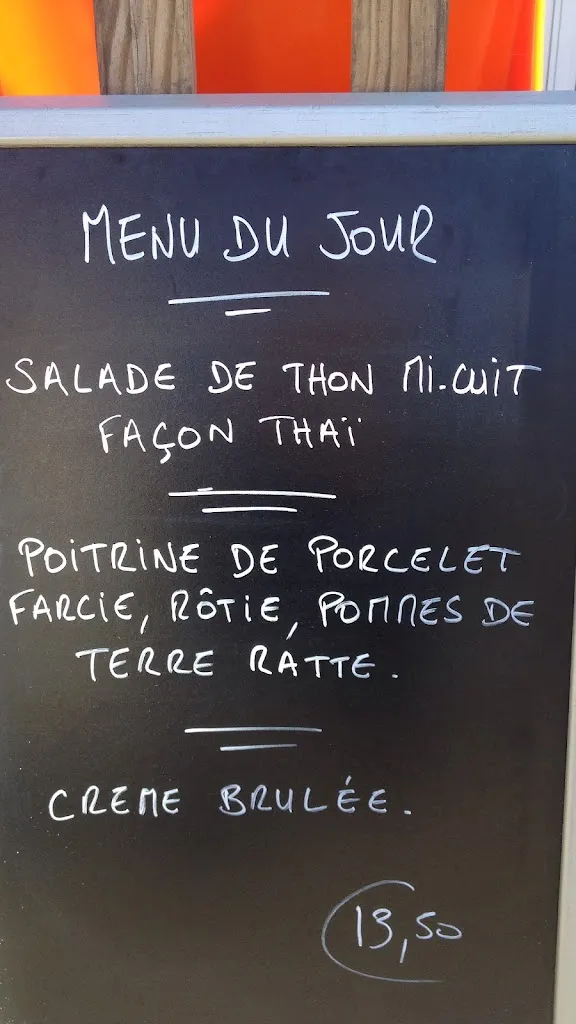 MENU DU JOUR
SALADE DE THON MI-CUIT
FAÇON THAÏ
POITRINE DE PORCELET
FARCIE, RÔTIE, POMMES DE
TERRE RATTE.
CREME BRULÉE.
19,50